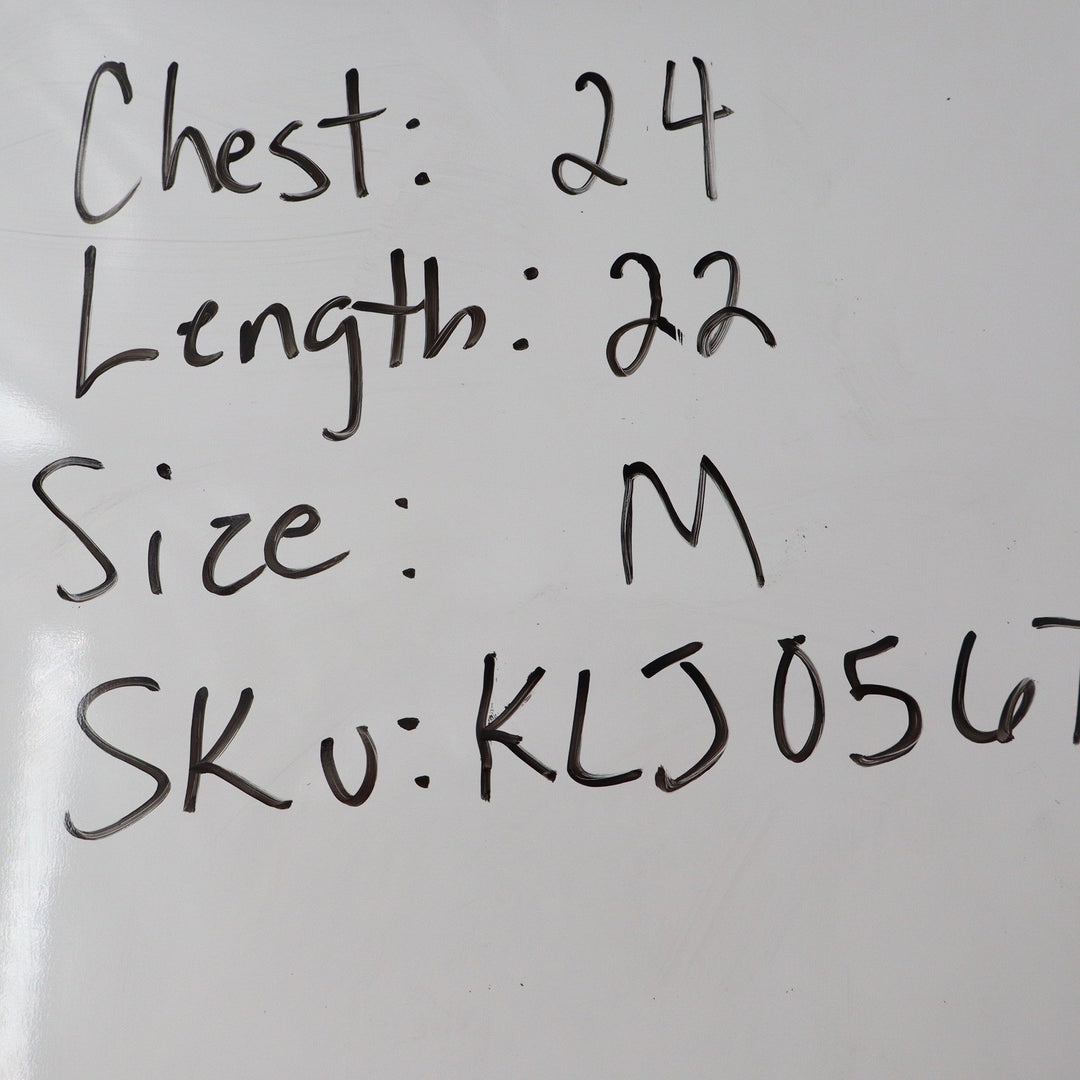 Chest: 24
Length: 22
Size: M
SKU: KLJ056